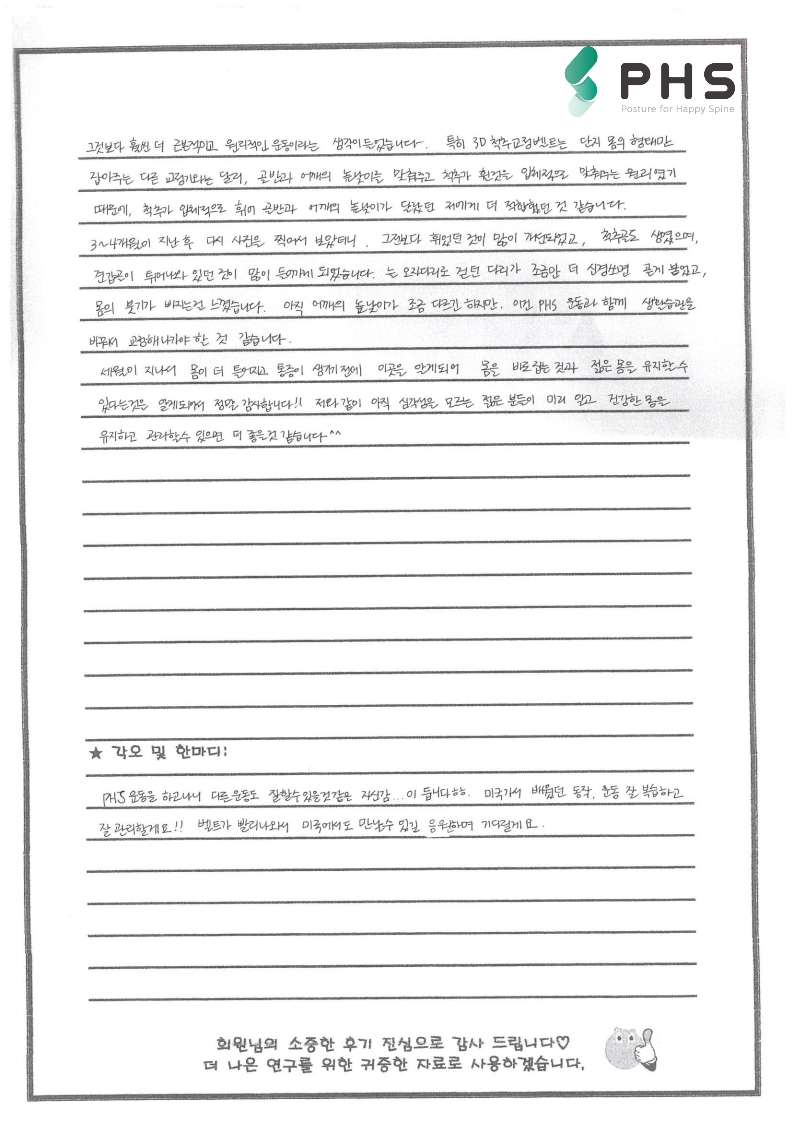 PHS
Posture for Happy Spine
그것보다 훨씬 더 근본적이고 원리적인 운동이라는 생각이 들었습니다. 특히 3D 척추교정벨트는 단지 몸의 형태만
잡아주는 다른 교정기와는 달리, 골반과 어깨의 높낮이를 맞춰주고 척추가 휜것을 입체적으로 맞춰주는 원리였기
때문에, 척추가 입체적으로 휘어 골반과 어깨의 높낮이가 달랐던 저에게 더 적합했던 것 같습니다.
3~4개월이 지난 후 다시 사진을 찍어서 보았더니, 그전보다 휘었던 것이 많이 개선되었고, 척추골도 생겼으며,
견갑골이 튀어나와 있던 것이 많이 들어가게 되었습니다. 또 오자다리로 걷던 다리가 조금만 더 신경쓰면 곧게 붙었고,
몸의 붓기가 빠지는걸 느꼈습니다. 아직 어깨의 높낮이가 조금 다르긴 하지만, 이건 PHS 운동과 함께 생활습관을
바꿔서 교정해나가야 한 것 같습니다.
세월이 지나서 몸이 더 틀어지고 통증이 생기기 전에 이곳을 알게되어 몸을 바로잡는 것과 젊은 몸을 유지할 수
있다는것을 알게되어서 정말 감사합니다!! 저와 같이 아직 심각성을 모르는 젊은 분들이 미리 알고 건강한 몸을
유지하고 관리할수 있으면 더 좋을것 같습니다^^
★ 각오 및 한마디:
PHS 운동을 하고나니 다른운동도 잘할수있을것같은 자신감...이 듭니다ㅎㅎ. 미국가서 배웠던 동작, 운동 잘 복습하고
잘 관리할게요!! 벨트가 빨리나와서 미국에서도 만날수 있길 응원하며 기다릴게요.
회원님의 소중한 후기 진심으로 감사 드립니다♡
더 나은 연구를 위한 귀중한 자료로 사용하겠습니다.